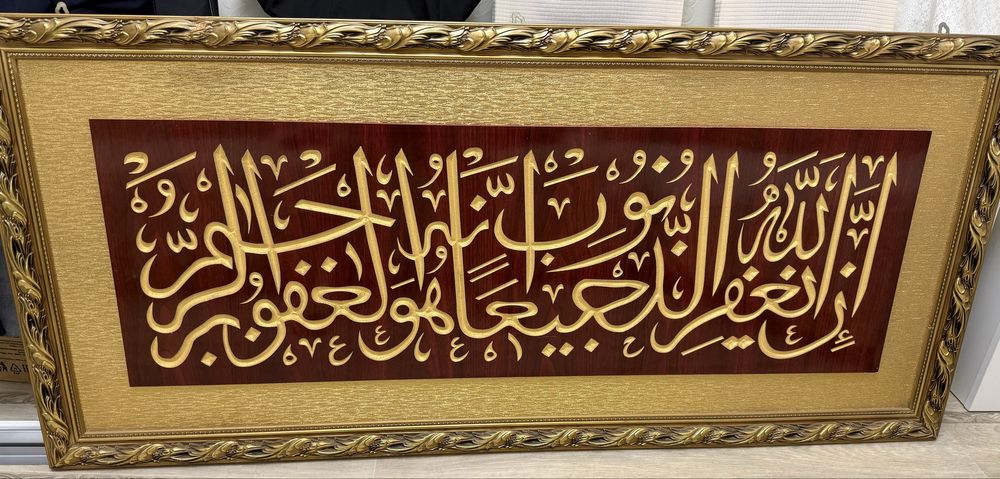 إن الله يغفر الذنوب جميعا إنه هو الغفور الرحيم